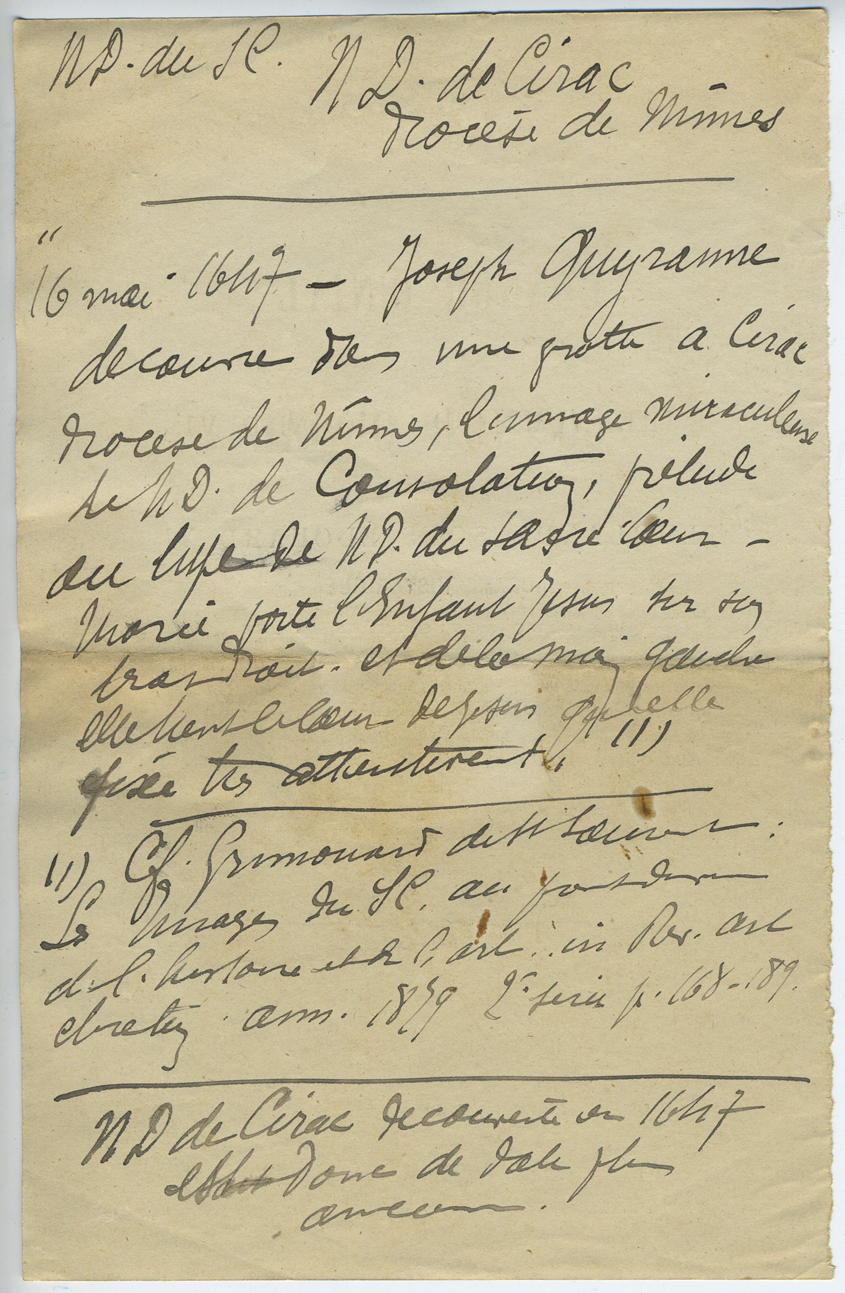 ND. du SC. ND. de Cirac
diocèse de Nîmes
"
16 mai 1647 – Joseph Queyranne
decouvre dans une grotte a Cirac
diocese de Nîmes, l'image miraculeuse
de ND. de Consolation, prélude
au type de ND. du sacré-Cœur –
Marie porte l'Enfant Jesus sur son
bras droit. et de la main gauche
elle tient le Cœur de Jesus qu'elle
fixe tres attentivement." (1)
(1) Cf. Grimouard de St Laurent :
Les Images du SC. au point de vue
de l'histoire et de l'art. in Rev. art
chretien ann. 1879 2e serie p. 168-189.
ND de Cirac decouverte en 1647
est donc de date plus
ancienne.